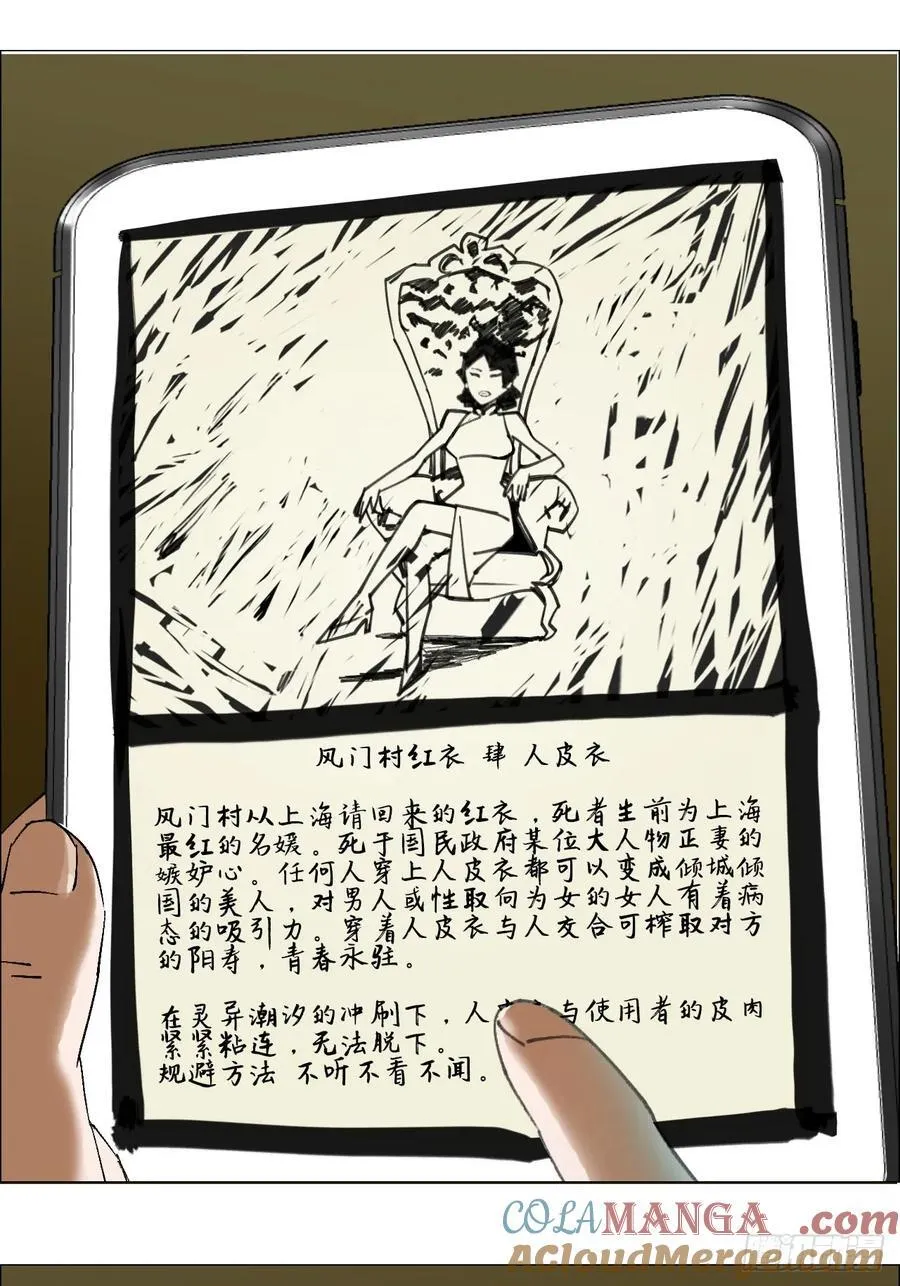 风门村红衣 肆 人皮衣
风门村从上海请回来的红衣，死者生前为上海
最红的名媛。死于国民政府某位大人物正妻的
嫉妒心。任何人穿上人皮衣都可以变成倾城倾
国的美人，对男人或性取向为女的女人有着病
态的吸引力。穿着人皮衣与人交合可榨取对方
的阳寿，青春永驻。
在灵异潮汐的冲刷下，人皮衣与使用者的皮肉
紧紧粘连，无法脱下。
规避方法 不听不看不闻。
COLAMANGA.com
AcloudMerge.com